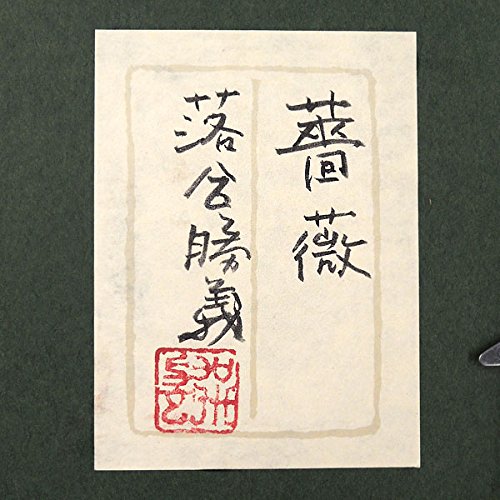 薔薇
落合勝義